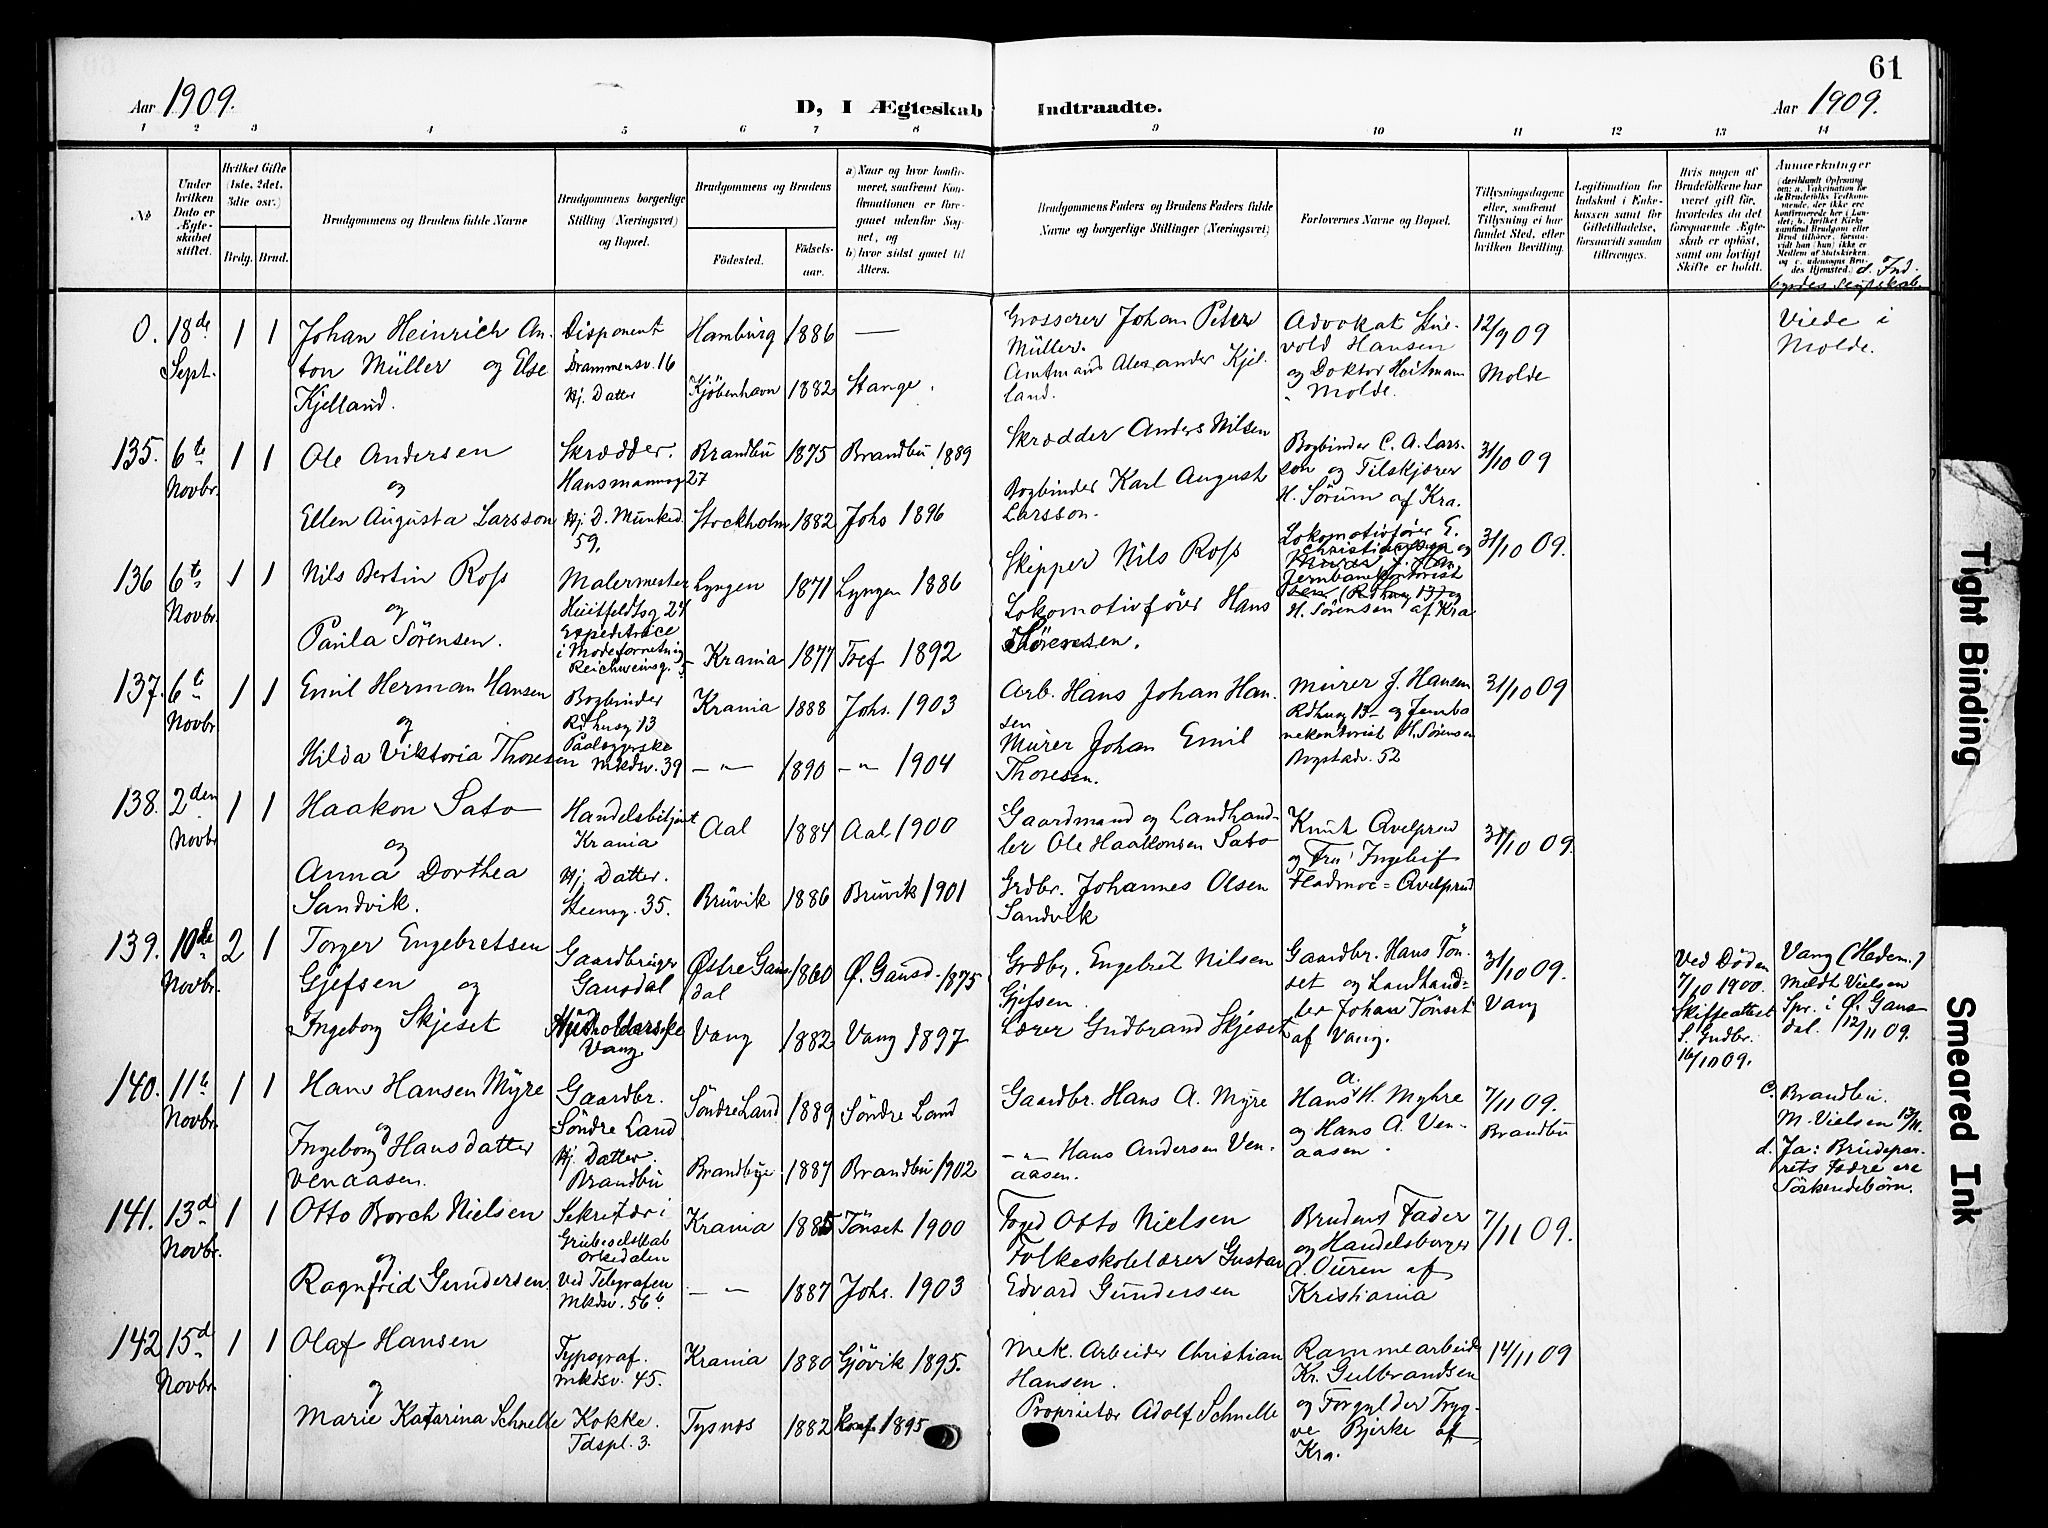 61
Aar 1909.
D, I Ægteskab Indtraadte.
Aar 1909.
1 2 3 4 5 6 7 8 9 10 11 12 13 14
No
Under hvilken Dato er Ægteskabet stiftet.
Hvilket Gifte (1ste, 2det, 3die osv.)
Brdg. Brud.
Brudgommens og Brudens fulde Navne
Brudgommens borgerlige Stilling (Næringsvei) og Bopæl.
Brudgommens og Brudens
Fødested.
Fødselsaar.
a) Naar og hvor konfirmeret, saafremt Konfirmationen er foregaaet udenfor Sognet, og
b) hvor sidst gaaet til Alters.
Brudgommens Faders og Brudens Faders fulde Navne og borgerlige Stillinger (Næringsvei)
Forlovernes Navne og Bopæl.
Tillysningsdagene eller, saafremt Tillysning ei har fundet Sted, efter hvilken Bevilling.
Legitimation for Indskud i Enkekassen samt for Giftetilladelse, forsaavidt saadan tiltrænges.
Hvis nogen af Brudefolkene har været gift før, hvorledes da det foregaaende Ægteskab er opløst, samt om lovligt Skifte er holdt.
Anmerkninger (deriblandt Oplysning om: a. Vakcination for de Brudefolks Vedkommende, der ikke ere konfirmerede her i Landet; b. hvilket Kirkesamfund Brudgom eller Brud tilhører, forsaavidt han (hun) ikke er Medlem af Statskirken og c. udensogns Brudes Hjemsted.) d. Indbyrdes Slegtskab.
0. 18de Sept. 1 1
Johan Heinrich Anton Müller og Else Kjelland.
Disponent Drammensv. 16
Hj. Datter
Hamburg 1886 —
Kjöbenhavn 1882 Stange.
Grosserer Johan Peter Müller.
Amtmand Alexander Kjelland.
Advokat Hansen og Doktor Heitmann Molde.
12/9 09
Molde
Viede i Molde.
135. 6te Novbr. 1 1
Ole Andersen
og
Ellen Augusta Larsson
Skrædder. Hansmannsg 27
Hj. D. Munked. 59.
Brandbu 1875 Brandbu 1889
Stockholm 1882 Johs 1896
Skrædder Anders Nilsen
Bogbinder Karl August Larsson.
Bogbinder C. A. Larsson og Tilskjærer H. Sörum af Kra.
31/10 09
136 6t Novbr. 1 1
Nils Bertin Ross
og
Paula Sörensen.
Malermester Heitfeldtsg 24
Expeditrice i Modeforretning Reichweinsg.
Lyngen 1871 Lyngen 1886
Krania 1877 Tref 1892
Skipper Nils Ross
Lokomotivförer Hans Sörensen.
Lokomotivförer E. Christiansen og Jernbanekontorist H. Sörensen af Kra
31/10 09.
137. 6t Novbr 1 1
Emil Herman Hansen
og
Hilda Viktoria Thoresen
Bogbinder Rdhusg 13
Paalæggerske Mkdsv. 39
Krania 1888 Johs. 1903
— " — 1890 — " 1904
Arb. Hans Johan Hansen
Murer Johan Emil Thoresen.
Murer J. Hansen Rdhusg 13 og Jernbanekontorist H. Sörensen Bygstadv. 52
31/10 09
138. 2den Novbr 1 1
Haakon Sato
og
Anna Dorthea Sandvik.
Handelsbetjent Krania
Hj. Datter. Steensg. 35.
Aal 1884 Aal 1900
Bruvik 1886 Bruvik 1901
Gaardmand og Landhandler Ole Haakonsen Sato
Grdbr. Johannes Olsen Sandvik
Knut Qvelprud og Fru Ingeleif Fladmoe=Qvelprud
31/10 09.
139. 10de Novbr. 2 1
Torger Engebretsen Gjefsen og
Ingeborg Skjeset
Gaardbruger Gausdal
Husholderske Vang
Østre Gausdal 1860 Ø. Gausd. 1875
Vang 1882 Vang 1897
Grdbr. Engebret Nilsen Gjefsen.
Lærer Gudbrand Skjeset
Gaardbr. Hans Tönset og Landhandler Johan Tönset af Vang.
31/10 09.
Vang
Ved Döden 7/10 1900. Skifteattest S. Gudbr. 16/10 09.
Vang (Hedem.) Meldt Vielsen Spr. i Ø. Gausdal. 12/11 09.
140. 11te Novbr. 1 1
Hans Hansen Myre
og
Ingeborg Hansdatter Venaasen.
Gaardbr. Söndre Land
Hj. Datter. Brandbu
Söndre Land 1889 Söndre Land
Brandbye 1887 Brandbu 1902
Gaardbr. Hans A. Myre
— " — Hans Andersen Venaasen.
Hans A. H. Myhre og Hans A. Venaasen.
7/11 09.
Brandbu
c. Brandbu. M. Vielsen 13/11.
d. Ja: Brudeparrets Fædre ere Söskendebörn.
141. 13d Novbr. 1 1
Otto Borch Nielsen
og
Ragnfrid Gundersen
Sekretær i Grubeselskab Orkedalen
Ved Telegrafen Mkdsv. 56b.
Krania 1885 Tönset 1900
— " — 1887 Johs. 1903
Foged Otto Nielsen
Folkeskolelærer Gustav Edvard Gundersen
Brudens Fader og Handelsborger A. Ouren af Kristiania
7/11 09.
142 15d Novbr. 1 1
Olaf Hansen
og
Marie Katarina Schnelle
Typograf. Mkdsv. 45.
Kokke. Tdspl. 3.
Krania 1880 Gjövik 1895.
Tysnes 1882 1895
Mek. Arbeider Christian Hansen.
Proprietær Adolf Schnelle
Rammearbeider Kr. Gulbrandsen og Forgylder Trygve Bjerke af Kra.
14/11 09
Tight Binding
Smeared Ink